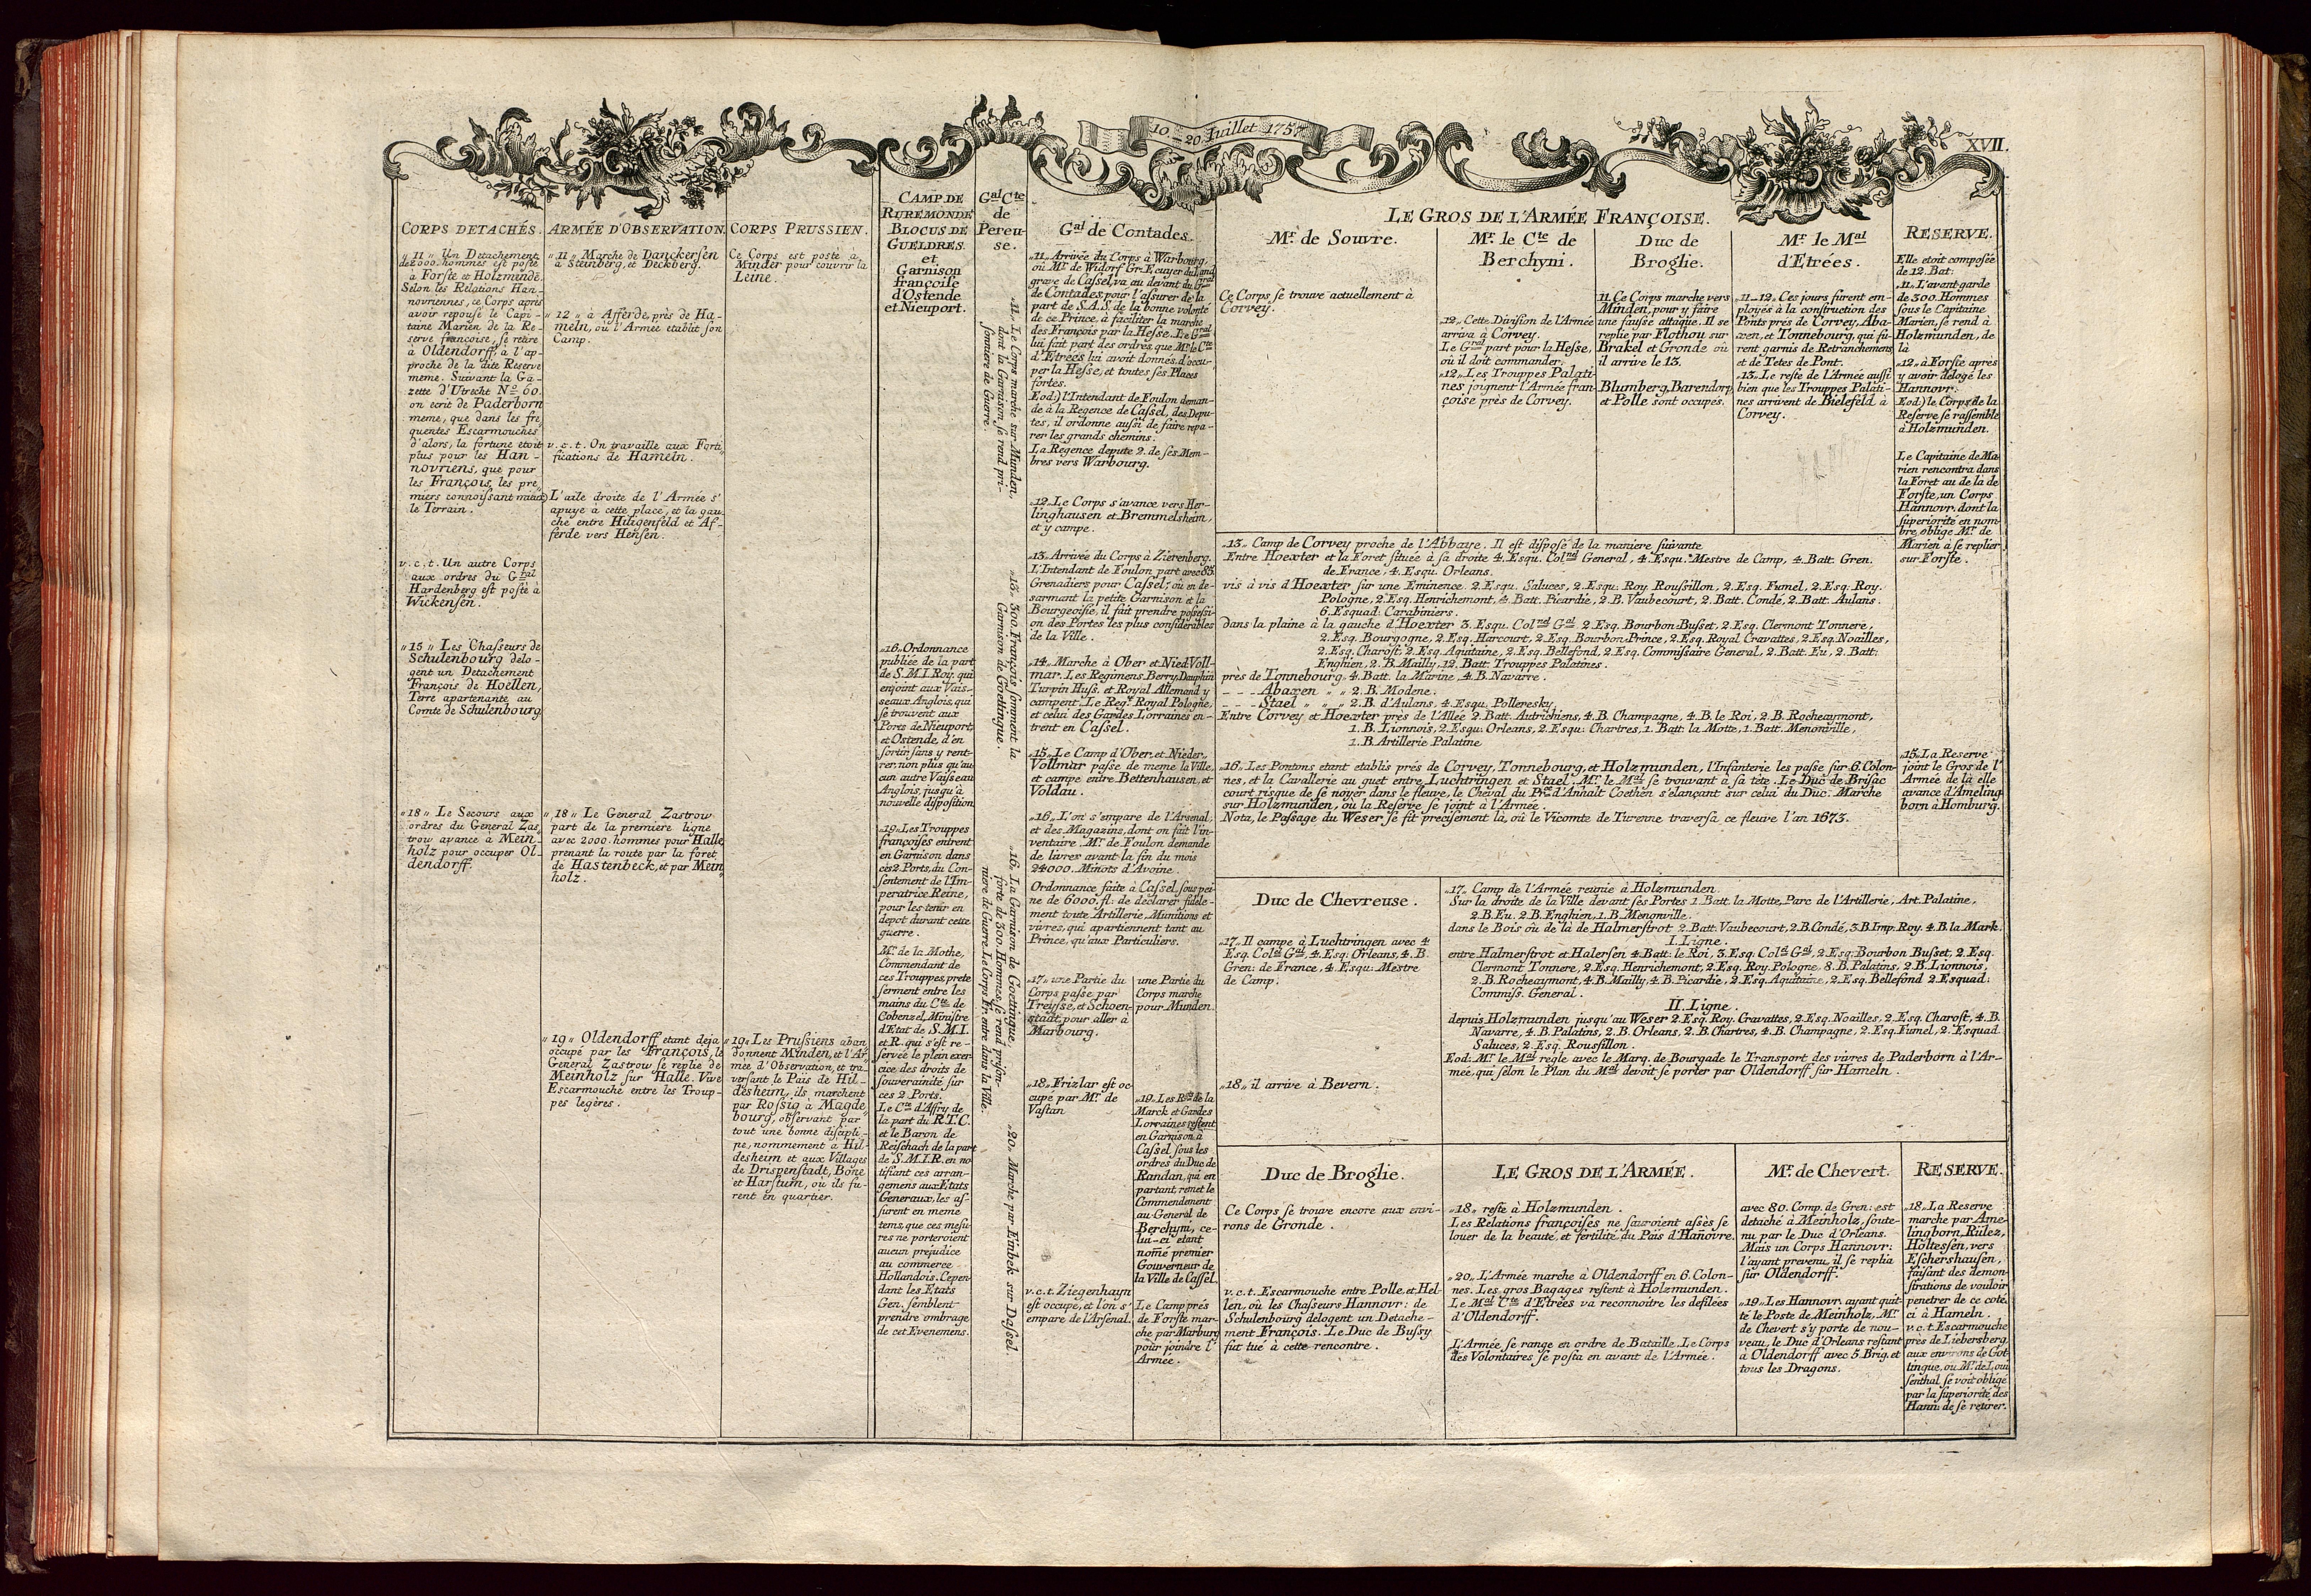 10.–20. Juillet 1757.
XVII.
CORPS DETACHÉS.
„11„ Un Detachement
de 2000. hommes est posté
à Forste et Holzminde.
Selon les Relations Han-
novriennes, ce Corps après
avoir repousé le Capi-
taine Marien de la Re-
serve françoise, se retire
à Oldendorff à l'ap-
proche de la dite Reserve
meme. Suivant la Ga-
zette d'Utrecht No. 60.
on ecrit de Paderborn
meme, que dans les fre
quentes Escarmouches
d'alors, la fortune etoit
plus pour les Han-
novriens, que pour
les François, les pre
miers connoissant mieux
le Terrain.
v.c.t. Un autre Corps
aux ordres du Gral
Hardenberg est posté à
Wickensen.
„15„ Les Chasseurs de
Schulenbourg delo-
gent un Detachement
François de Hoellen,
Terre apartenante au
Comte de Schulenbourg
„18„ Le Secours aux
ordres du General Zas
trow avance à Mein-
holz pour occuper Ol-
dendorff.
ARMÉE D'OBSERVATION.
„11„ Marche de Danckersen
à Steinberg, et Deckberg.
„12„ à Afferde, près de Ha-
meln, où l'Armée etablit son
Camp.
v.c.t. On travaille aux Forti
fications de Hameln.
L'aile droite de l'Armée s'
apuye à cette place, et la gau
che entre Hiligenfeld et Af-
ferde vers Hensen.
„18„ Le General Zastrow
part de la premiere ligne
avec 2000. hommes pour Halle,
prenant la route par la foret
de Hastenbeck, et par Mein
holz.
„19„ Oldendorff etant deja
occupé par les François, le
General Zastrow se replie de
Meinholz sur Halle. Vive
Escarmouche entre les Troup-
pes legères.
CORPS PRUSSIEN.
Ce Corps est posté à
Minder pour couvrir la
Leine.
„19„ Les Prussiens aban
donnent Minden, et l'Ar
mée d'Observation, et tra-
versant le Pais de Hil-
desheim, ils marchent
par Rossig à Magde
bourg, observant par
tout une bonne discipli-
ne, nommement à Hil
desheim et aux Villages
de Drispenstadt, Bone
et Harstum, où ils fu-
rent en quartier.
CAMP DE
RUREMONDE
BLOCUS DE
GUELDRES.
et
Garnison
françoise
d'Ostende
et Nieuport.
„16„ Ordonnance
publiée de la part
de S.M.I. Roy. qui
enjoint aux Vais-
seaux Anglois, qui
se trouvent aux
Ports de Nieuport
et Ostende, d'en
sortir sans y rent-
rer, non plus qu'au
cun autre Vaisseau
Anglois, jusqu'à
nouvelle disposition
„19„ Les Trouppes
françoises entrent
en Garnison dans
ces 2 Ports, du Con-
sentement de l'Im-
peratrice Reine,
pour les tenir en
depot durant cette
guerre.
Mr. de la Mothe,
Commendant de
ces Trouppes, prete
serment entre les
mains du Cte de
Cobenzel, Ministre
d'Etat de S.M.I.
et R. qui s'est re-
servée le plein exer
cice des droits de
souveraineté sur
ces 2 Ports.
Le Cte d'Affry de
la part du R.T.C.
et le Baron de
Reischach de la part
de S.M.I.R. en no
tifiant ces arran-
gemens aux Etats
Generaux, les as-
surent en meme
tems, que ces mesu
res ne porteroient
aucun prejudice
au commerce
Hollandois. Cepen
dant les Etats
Gen. semblent
prendre ombrage
de cet Evenemens.
Gal Cte
de
Pereu-
se.
„11„ Le Corps marche sur Munden,
dont la Garnison se rend pri-
sonniere de Guerre.
„13„ 300. François somment la
Garnison de Goettingue.
„16„ La Garnison de Goettingue,
forte de 300. Hommes, se rend prison-
niere de Guerre. Le Corps Fr. entre dans la Ville.
„20„ Marche par Einbek sur Dassel.
Gal de Contades.
„11„ Arrivée du Corps à Warbourg,
où Mr. de Widorf Gr. Ecuyer du Land
grave de Cassel, va au devant du Gral
de Contades pour l'assurer de la
part de S.A.S. de la bonne volonté
de ce Prince, à faciliter la marche
des François par la Hesse. Le Gral
lui fait part des ordres que Mr. le Cte
d'Etrées lui avoit donnés, d'occu-
per la Hesse, et toutes ses Places
fortes.
Eod.) l'Intendant de Foulon deman-
de à la Regence de Cassel, des Depu-
tes, il ordonne aussi de faire repa-
rer les grands chemins.
La Regence depute 2. de ses Mem-
bres vers Warbourg.
„12. Le Corps s'avance vers Her-
linghausen et Bremmelsheim,
et y campe.
„13. Arrivée du Corps à Zierenberg.
L'Intendant de Foulon part avec 85.
Grenadiers pour Cassel, où en de-
sarmant la petite Garnison et la
Bourgeoisie, il fait prendre possessi-
on des Portes les plus considérables
de la Ville.
„14. Marche à Ober et Nied. Voll-
mar. Les Regimens Berry, Dauphin
Turpin Huss. et Royal Allemand y
campent. Le Reg. Royal Pologne,
et celui des Gardes Lorraines en-
trent en Cassel.
„15. Le Camp d'Ober et Nieder
Vollmar passe de meme la Ville,
et campe entre Bettenhausen, et
Voldau.
„16„ L'on s'empare de l'Arsenal,
et des Magazins, dont on fait l'in-
ventaire. Mr. de Foulon demande
de livres avant la fin du mois
24000. Minots d'Avoine.
Ordonnance faite à Cassel, sous pei
ne de 6000. fl. de declarer fidele-
ment toute Artillerie, Munitions et
vivres, qui apartiennent tant au
Prince, qu'aux Particuliers.
„17„ une Partie du
Corps passe par
Treysse, et Schoen-
stadt, pour aller à
Marbourg.
„18„ Frizlar est oc-
cupé par Mr. de
Vastan
v.c.t. Ziegenhayn
est occupé, et l'on s'
empare de l'Arsenal.
une Partie du
Corps marche
pour Munden.
„19. Les Rts de la
Marck et Gardes
Lorraines restent
en Garnison à
Cassel sous les
ordres du Duc de
Randan, qui en
partant, remet le
Commendement
au General de
Berchyni, ce-
lui-ci etant
nomé premier
Gouverneur de
la Ville de Cassel.
Le Camp près
de Forste mar-
che par Marburg
pour joindre l'
Armée.
LE GROS DE L'ARMÉE FRANÇOISE.
Mr. de Souvre.
Ce Corps se trouve actuellement à
Corvey.
Mr. le Cte de
Berchyni.
„12„ Cette Division de l'Armée
arriva à Corvey.
Le Gral part pour la Hesse,
où il doit commander.
„12„ Les Trouppes Palati-
nes joignent l'Armée fran-
çoise près de Corvey.
Duc de
Broglie.
11. Ce Corps marche vers
Minden, pour y faire
une fausse attaque. Il se
replie par Flothou sur
Brakel et Gronde où
il arrive le 13.
Blumberg, Barendorp,
et Polle sont occupés.
Mr. le Mal
d'Etrées.
„11-12„ Ces jours furent em-
ployés à la construction des
Ponts près de Corvey, Aba-
xen, et Tonnebourg, qui fu-
rent garnis de Retranchemens
et de Tetes de Pont.
„13. Le reste de l'Armée aussi
bien que les Trouppes Palati-
nes arrivent de Bielefeld à
Corvey.
RESERVE.
Elle etoit composée
de 12. Bat:
„11. L'avant garde
de 300. Hommes
sous le Capitaine
Marien, se rend à
Holzmunden, de
là
„12„ à Forste après
y avoir delogé les
Hannovr:
Eod.) le Corps de la
Reserve se rassemble
à Holzmunden.
Le Capitaine de Ma
rien rencontra dans
la Foret au de là de
Forste, un Corps
Hannovr. dont la
superiorité en nom-
bre oblige Mr. de
Marien à se replier
sur Forste.
„15. La Reserve
joint le Gros de l'
Armée de là elle
avance d'Ameling
born à Homburg.
„13„ Camp de Corvey proche de l'Abbaye. Il est disposé de la maniere suivante
Entre Hoexter et la Foret située à sa droite 4. Esqu. Colnel General, 4. Esqu. Mestre de Camp, 4. Batt. Gren.
de France, 4. Esqu. Orleans.
vis à vis d'Hoexter sur une Eminence 2. Esqu. Saluces, 2. Esqu. Roy. Roussillon, 2. Esq. Fumel, 2. Esq. Roy.
Pologne, 2. Esq. Henrichemont, 4. Batt. Picardie, 2. B. Vaubecourt, 2. Batt. Condé, 2. Batt. Aulans.
6. Esquad. Carabiniers.
dans la plaine à la gauche d'Hoexter 3. Esqu. Colnel Gal. 2. Esq. Bourbon Busset, 2. Esq. Clermont Tonnere,
2. Esq. Bourgogne, 2. Esq. Harcourt, 2. Esq. Bourbon Prince, 2. Esq. Royal Cravattes, 2. Esq. Noailles,
2. Esq. Charost, 2. Esq. Aquitaine, 2. Esq. Bellefond, 2. Esq. Commissaire General, 2. Batt. Eu, 2. Batt:
Enghien, 2. B. Mailly, 12. Batt. Trouppes Palatines.
près de Tonnebourg 4. Batt. la Marine, 4. B. Navarre.
- - - Abaxen „ „ 2. B. Modene.
- - - Stael „ „ „ 2. B. d'Aulans. 4. Esqu. Polleresky.
Entre Corvey et Hoexter près de l'Allée 2. Batt. Autrichiens, 4. B. Champagne, 4. B. le Roi, 2. B. Rocheaymont,
1. B. Lionnois, 2. Esqu. Orleans, 2. Esqu. Chartres, 1. Batt. la Motte, 1. Batt. Menonville,
1. B. Artillerie Palatine
„16. Les Pontons etant etablis prés de Corvey, Tonnebourg, et Holzmunden, l'Infanterie les passe sur 6. Colon-
nes, et la Cavallerie au guet entre Luchtringen et Stael. Mr. le Mal se trouvant à sa tête. Le Duc de Brisac
court risque de se noyer dans le fleuve, le Cheval du Prce d'Anhalt Coethen s'elançant sur celui du Duc. Marche
sur Holzmunden, où la Reserve se joint à l'Armée.
Nota, le Passage du Weser se fit precisement là, où le Vicomte de Turenne traversa ce fleuve l'an 1673.
Duc de Chevreuse.
„17„ Il campe à Luchtringen avec 4
Esq. Colel Gal, 4. Esq. Orleans, 4. B.
Gren: de France, 4. Esqu: Mestre
de Camp.
„18„ il arrive à Bevern.
„17„ Camp de l'Armée reunie à Holzmunden.
Sur la droite de la Ville devant ses Portes 1. Batt. la Motte, Parc de l'Artillerie, Art. Palatine,
2. B. Eu. 2. B. Enghien, 1. B. Menonville.
dans le Bois où de là de Halmerstrot 2. Batt. Vaubecourt, 2. B. Condé, 3. B. Imp. Roy. 4. B. la Mark.
I. Ligne.
entre Halmerstrot et Halersen 4. Batt. le Roi, 3. Esq. Colel Gal, 2. Esq: Bourbon Busset, 2. Esq.
Clermont Tonnere, 2. Esq. Henrichemont, 2. Esq. Roy. Pologne. 8. B. Palatins, 2. B. Lionnois,
2. B. Rocheaymont, 4. B. Mailly, 4. B. Picardie, 2. Esq. Aquitaine, 2. Esq. Bellefond 2. Esquad:
Commiss. General.
II. Ligne.
depuis Holzmunden jusqu'au Weser 2. Esq. Roy. Gravattes, 2. Esq. Noailles, 2. Esq. Charost, 4. B.
Navarre, 4. B. Palatins, 2. B. Orleans, 2. B. Chartres, 4. B. Champagne, 2. Esq. Fumel, 2. Esquad.
Saluces, 2. Esq. Roussillon.
Eod: Mr. le Mal regle avec le Marq. de Bourgade le Transport des vivres de Paderborn à l'Ar-
mée, qui selon le Plan du Mal devoit se porter par Oldendorff sur Hameln.
Duc de Broglie.
Ce Corps se trouve encore aux envi-
rons de Gronde.
v.c.t. Escarmouche entre Polle et Hel-
len, où les Chasseurs Hannovr: de
Schulenbourg delogent un Detache-
ment François. Le Duc de Bussy
fut tué à cette rencontre.
LE GROS DE L'ARMÉE.
„18„ reste à Holzmunden.
Les Relations françoises ne sauroient assès se
louer de la beauté, et fertilité du Païs d'Hañovre.
„20„ L'Armée marche à Oldendorff en 6. Colon-
nes. Les gros Bagages restent à Holzmunden.
Le Mal Cte d'Etrées va reconnoitre les defilées
d'Oldendorff.
L'Armée se range en ordre de Bataille. Le Corps
des Volontaires se posta en avant de l'Armée.
Mr. de Chevert.
avec 80. Comp. de Gren: est
detaché à Meinholz, soute-
nu par le Duc d'Orleans.
Mais un Corps Hannovr:
l'ayant prevenu, il se replia
sur Oldendorff.
„19„ Les Hannovr. ayant quit-
té le Poste de Meinholz, Mr.
de Chevert s'y porte de nou-
veau, le Duc d'Orleans restant
à Oldendorff avec 5. Brig. et
tous les Dragons.
RESERVE.
„18. La Reserve
marche par Ame-
lingborn, Rulez,
Holtessen, vers
Eschershausen,
faisant des demon-
strations de vouloir
penetrer de ce coté
ci à Hameln.
v.c.t. Escarmouche
près de Liebersberg
aux environs de Got-
tingue, où Mr. de Loui
senthal se voit obligé
par la superiorité des
Hann: de se retirer.